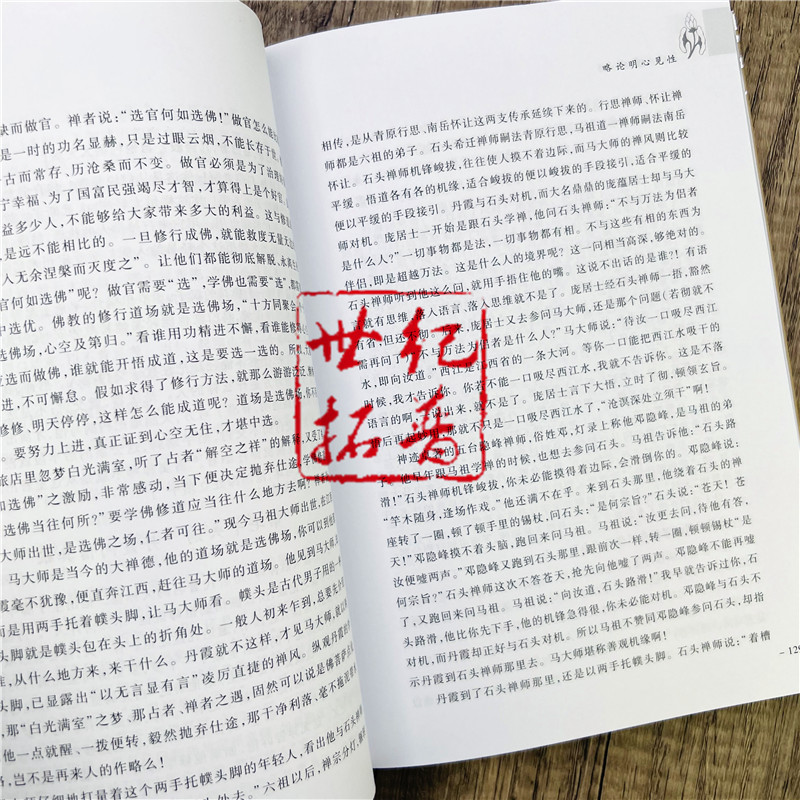 缺而做官。禅者说：“选官何如选佛！”做官怎么能
是一时的功名显赫，只是过眼云烟，不能长存于世，
古而常存、历沧桑而不变。做官必须是为了治理
宁幸福、为了国富民强竭尽才智，才算得上是个好官，
益多少人，不能够给大家带来多大的利益。这与修
是远不能相比的。一旦修行成佛，就能救度无量无
人无余涅槃而灭度之”。让他们都能彻底解脱，永离
官何如选佛”呢？做官需要“选”，学佛也需要“选”，那
中选优。佛教的修行道场就是选佛场，“十方同聚会
佛场，心空及第归。”看谁用功精进不懈，看谁能够
应选而做佛，谁就能开悟成道，这是要一选的。所
进，不可懈怠。假如求得了修行方法，就那么游游泛泛，
修修，明天停停，这样怎么能成道呢？道场是选佛场，你
。要努力上进，真正证到心空无住，才堪中选。
旅店里忽梦白光满室，听了占者“解空之祥”的解释，又受
如选佛”之激励，非常感动，当下便决定抛弃仕途
选佛当往何所？”要学佛修道应当往什么地方去啊？
大师出世，是选佛之场，仁者可往。”现今马祖大师出世，在江
马大师是当今的大禅德，他的道场就是选佛场，你可以到他
霞毫不犹豫，便直奔江西，赶往马大师的道场。他见到马大
而是用两手托着幞头脚，让马大师看。幞头是古代男子用的一
头脚就是幞头包在头上的折角处。一般人初来乍到，总要先
谁，从什么地方来，来干什么。丹霞就不这样，才见马大师，就以
头脚，已显露出“以无言显有言”凌厉直捷的禅风。纵观丹霞的
，那“白光满室”之梦、那占者、禅者之遇，固然可以说是佛菩萨
他一点就醒、一拨便转，毅然抛弃仕途，那干净利落、毫不拖泥
略，岂不是再来人的作略么！
仔细地打量着这个两手托幞头脚的年轻人，看出他与石头
外去。”六祖以后，禅宗分灯，
略论明心见性
相传，是从青原行思、南岳怀让这两支传承延续下来的。行思禅师、怀让禅
师都是六祖的弟子。石头希迁禅师嗣法青原行思，马祖道一禅师嗣法南岳
怀让。石头禅师机锋峻拔，往往使人摸不着边际，而马大师的禅风则比较
平缓。悟道各有各的机缘，适合峻拔的便以峻拔的手段接引，适合平缓的
便以平缓的手段接引。丹霞与石头对机，而大名鼎鼎的庞蕴居士却与马大
师对机。庞居士一开始是跟石头学禅，他问石头禅师：“不与万法为侣者
是什么人？”一切事物都是法，一切事物都有相。不与这些有相的东西为
伴侣，即是超越万法。这是什么人的境界呢？这一问相当高深，够绝对的。
石头禅师听到他这么问，就用手捂住他的嘴。这说不出话的是谁？！有语
言就有思维，落入语言、落入思维就不是了。庞居士经石头禅师一捂，豁然
有省，但还不彻。后来，庞居士又去参问马大师，还是那个问题（若彻就不
需再问了）“不与万法为侣者是什么人？”马大师说：“待汝一口吸尽西江
水，即向汝道。”西江是江西省的一条大河。等你一口能把西江水吸干的
时候，我才告诉你。你若不能一口吸尽西江水，我就不告诉你。这是不落
语言的啊，一说出来，就不是了。庞居士言下大悟，立时了彻，顿领玄旨。
悟后更起妙用，那就不只是一口吸尽西江水了，“沧溟深处立须干”啊！
神迹卓著的五台隐峰禅师，俗姓邓，灯录上称他邓隐峰，是马祖的弟
子。他早年跟马祖学禅的时候，也想去参问石头。马祖告诉他：“石头路
滑！”石头禅师机锋峻拔，你未必能摸得着边际，会滑倒你的。邓隐峰说：
“竿木随身，逢场作戏。”他还满不在乎。来到石头那里，他绕着石头的禅
座转了一圈，顿了顿手里的锡杖，问石头：“是何宗旨？”石头说：“苍天！苍
天！”邓隐峰摸不着头脑，跑回来问马祖。马祖说：“汝更去问，待他有答，
汝便嘘两声。”邓隐峰又跑到石头那里，跟前次一样，转一圈，顿顿锡杖“是
何宗旨？”石头禅师这次不答苍天，抢先向他嘘了两声。邓隐峰不能再嘘
了，又跑回来问马祖。马祖说：“向汝道，石头路滑！”我早就告诉过你，石
头路滑，他比你先下手，他的机锋急得很，你未必能对机。邓隐峰与石头不
对机，而丹霞却正好与石头对机。所以马祖不赞同邓隐峰参问石头，却指
示丹霞到石头禅师那里去。马大师堪称善观机缘啊！
丹霞到了石头禅师那里，还是以两手托幞头脚。石头禅师说：“着槽
129
世纪
拓普